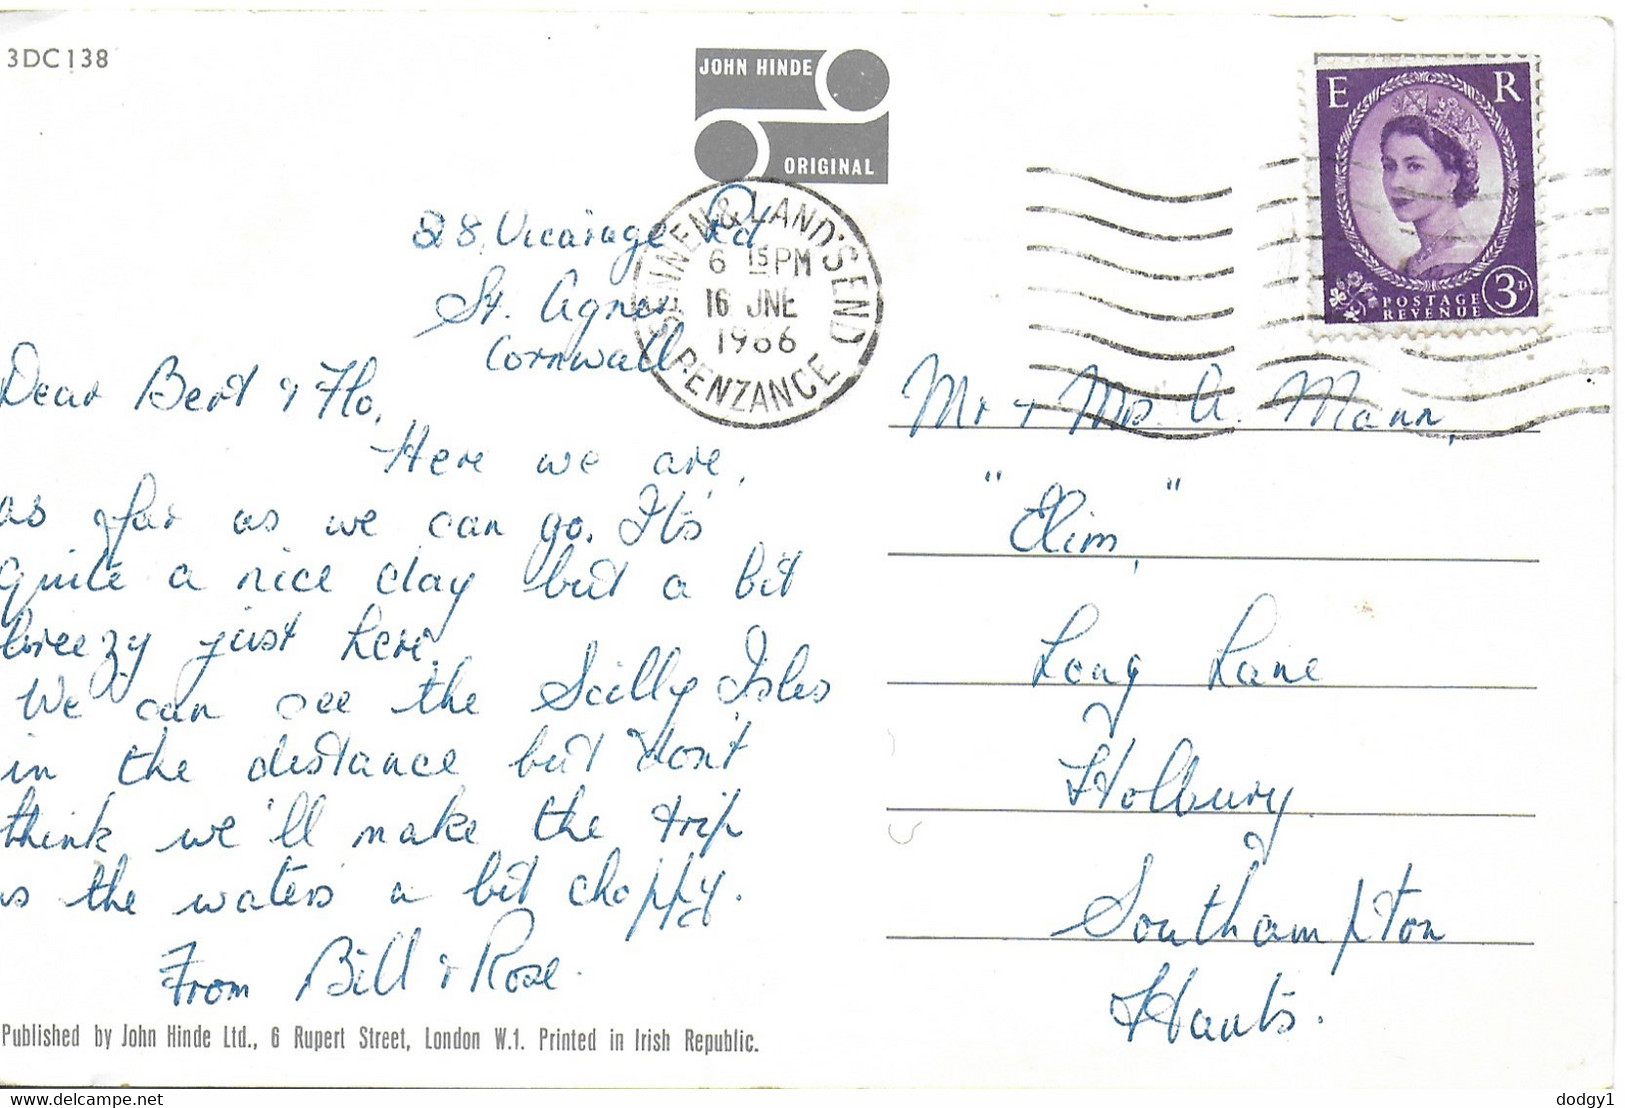 3DC138
JOHN HINDE
ORIGINAL
E R
POSTAGE
REVENUE
3D
SENNEN & LAND'S END
6 15 PM
16 JNE
1966
PENZANCE
28 Vicarage Rd
St. Agnes
Cornwall.
Dear Bert & Flo,
Here we are,
as far as we can go. It's
quite a nice day but a bit
breezy just here.
We can see the Scilly Isles
in the distance but don't
think we'll make the trip
as the waters a bit choppy.
From Bill & Rose.
Published by John Hinde Ltd., 6 Rupert Street, London W.1. Printed in Irish Republic.
Mr & Mrs. A. Mann,
"Elim,"
Long Lane
Holbury
Southampton
Hants.
Delcampe.net
dodgy1